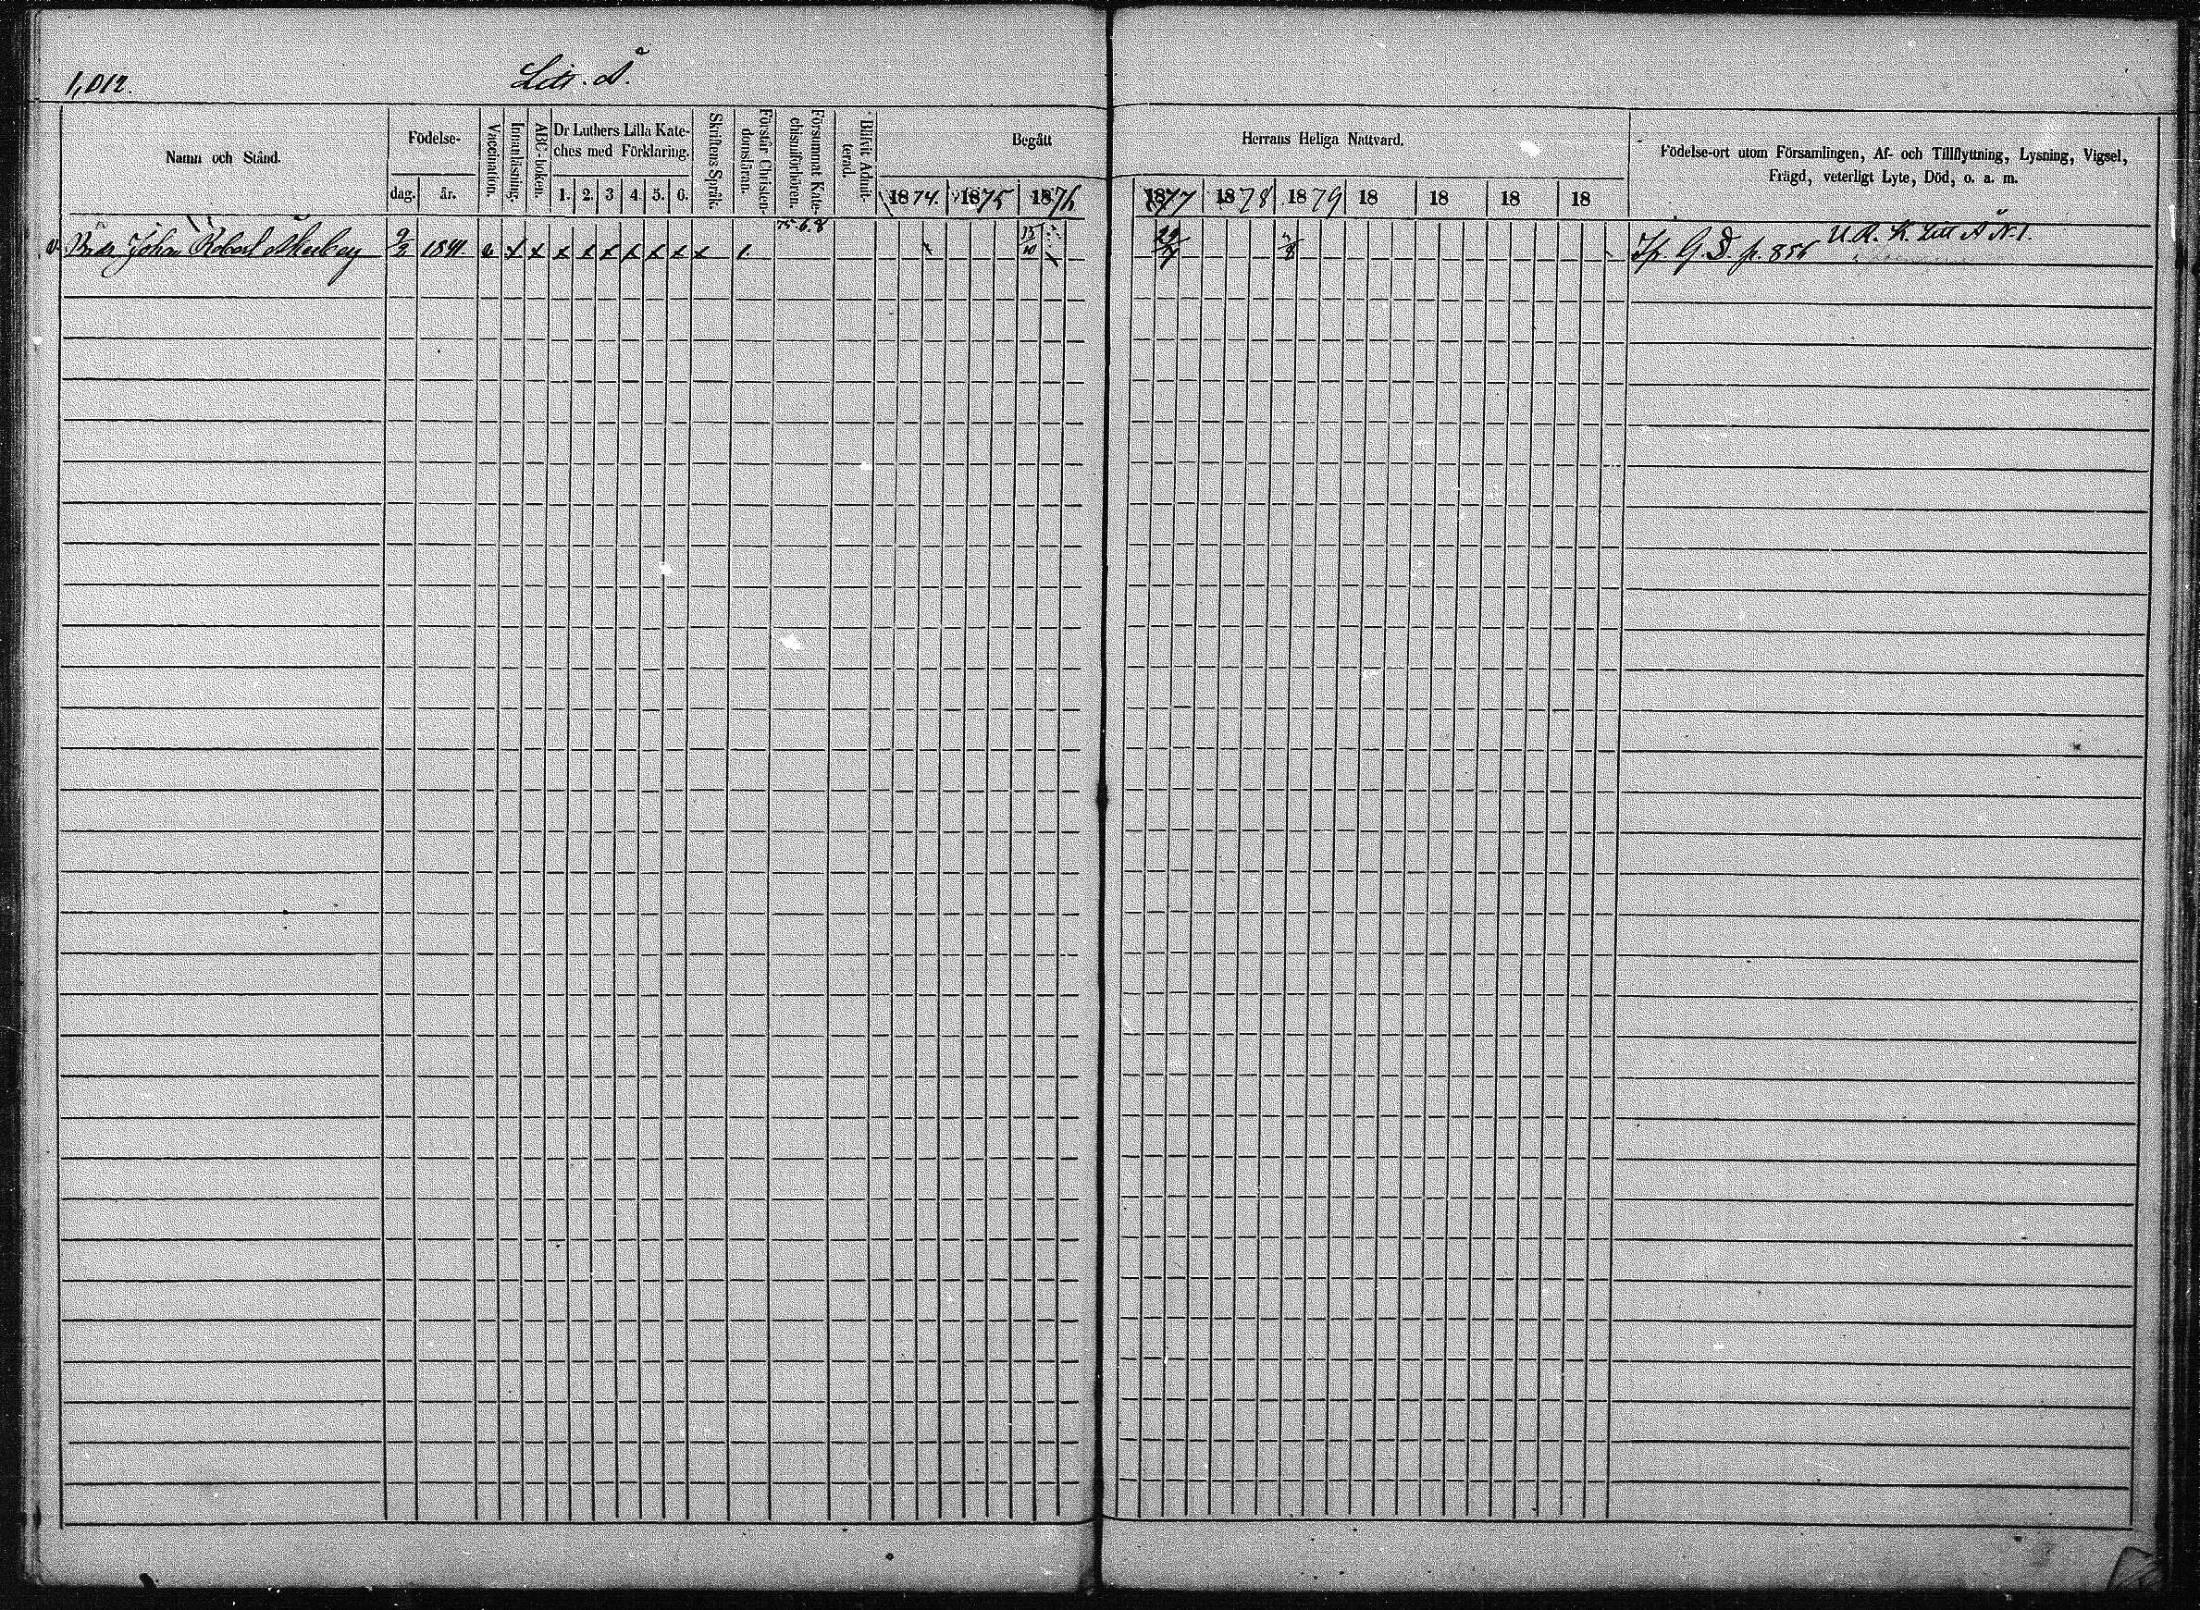 1,012.
Litt. Å.
Namn och Stånd.
Födelse-
dag.
år.
Vaccination.
Innanläsning.
ABC-boken.
Dr Luthers Lilla Kate-
ches med Förklaring.
1. 2. 3 4. 5. 6.
Skriftens Språk.
Förstår Christen-
domsläran.
Försummat Kate-
chismiförhören.
Blifvit Admit-
terad.
Begått
1874. 1875 1876
Herrans Heliga Nattvard.
1877 1878 1879 18 18 18 18
Födelse-ort utom Församlingen, Af- och Tillflyttning, Lysning, Vigsel,
Frägd, veterligt Lyte, Död, o. a. m.
75-6.8
John Robert Åkerberg 9/2 1841. x x x x x x x x x 1. 13/10 29/7
p. 856 U. R. K. Litt Å N. 1.